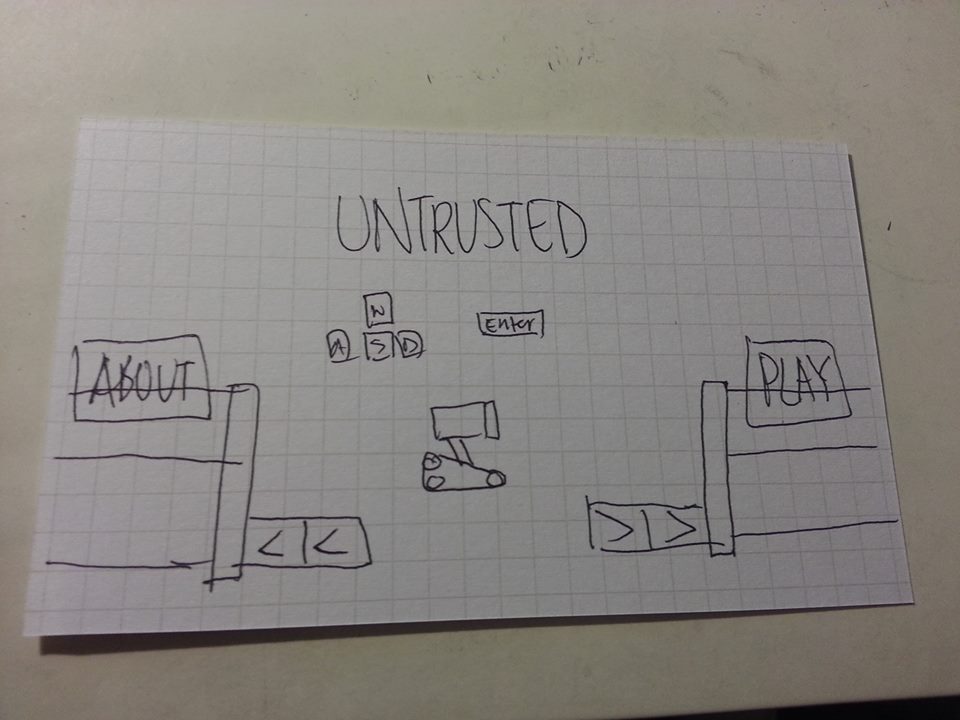 UNTRUSTED
W
A S D
Enter
ABOUT
PLAY
< <
> >